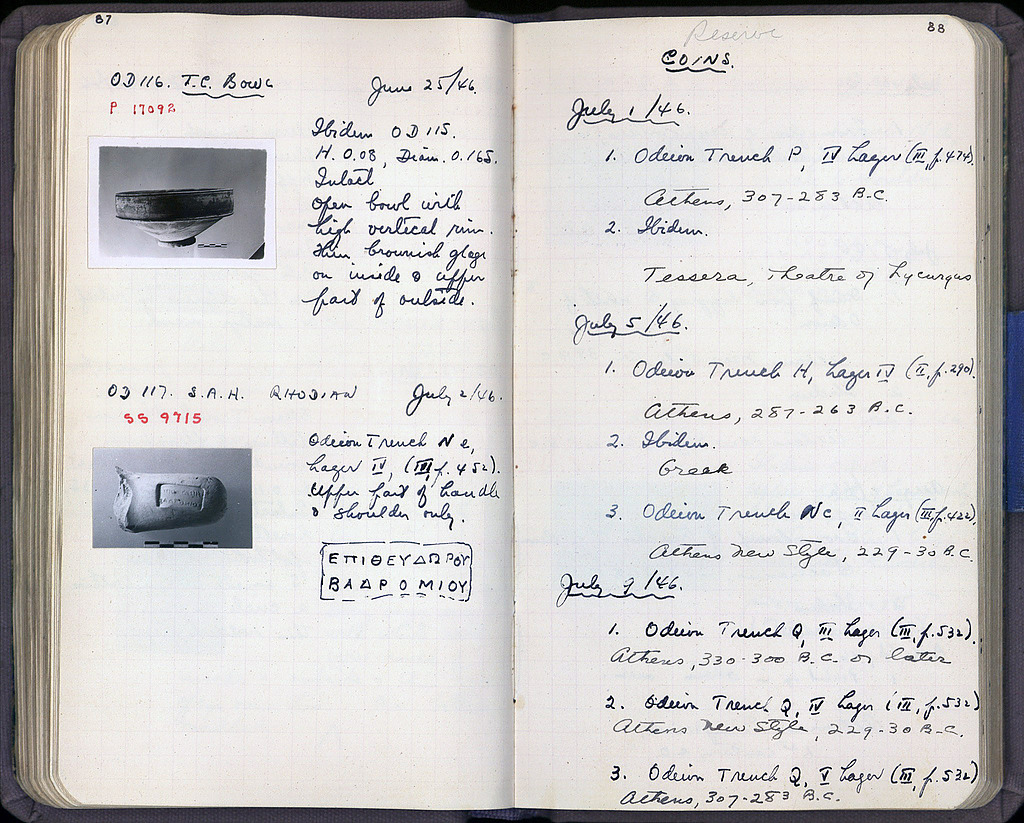 87
OD 116. T.C. Bowl June 25/46.
P 17092
Ibidem OD 115.
H. 0.08, Diam. 0.165.
Intact
Open bowl with
high vertical rim.
Thin brownish glaze
on inside & upper
part of outside.
OD 117. S.A.H. RHODIAN July 2/46.
SS 9715
Odeion Trench N e,
Lager IV, (III, p. 452).
Upper part of handle
& shoulder only.
ΕΠΙΘΕΥΔΩΡΟΥ
ΒΑΔΡΟΜΙΟΥ
88
Reserve
COINS.
July 1/46.
1. Odeion Trench P, IV Lager (III, p. 474).
Athens, 307-283 B.C.
2. Ibidem.
Tessera, Theatre of Lycurgus
July 5/46.
1. Odeion Trench H, Lager IV (II, p. 290).
Athens, 287-263 B.C.
2. Ibidem.
Greek
3. Odeion Trench Nc, II Lager (III, p. 422)
Athens New Style, 229-30 B.C.
July 9/46.
1. Odeion Trench Q, III Lager (III, p. 532).
Athens, 330-300 B.C. or later
2. Odeion Trench Q, IV Lager (III, p. 532)
Athens New Style, 229-30 B.C.
3. Odeion Trench Q, V Lager (III, p. 532)
Athens, 307-283 B.C.